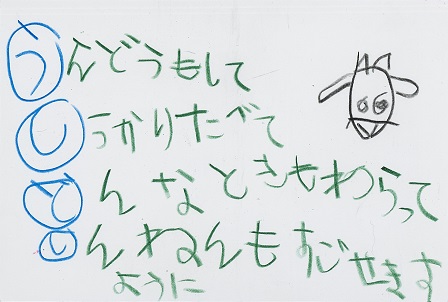 うんどうもして
しっかりたべて
どんなときもわらって
しんねんもすごせます
ように